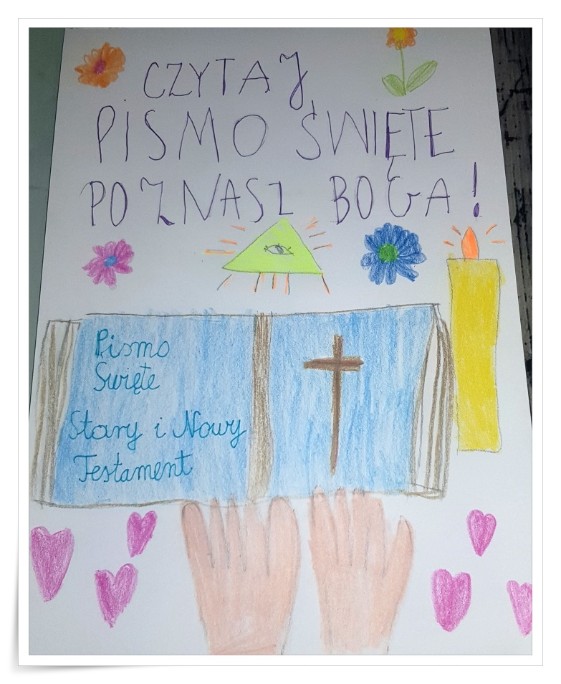 CZYTAJ,
PISMO ŚWIĘTE
POZNASZ BOGA!
Pismo
Święte
Stary i Nowy
Testament